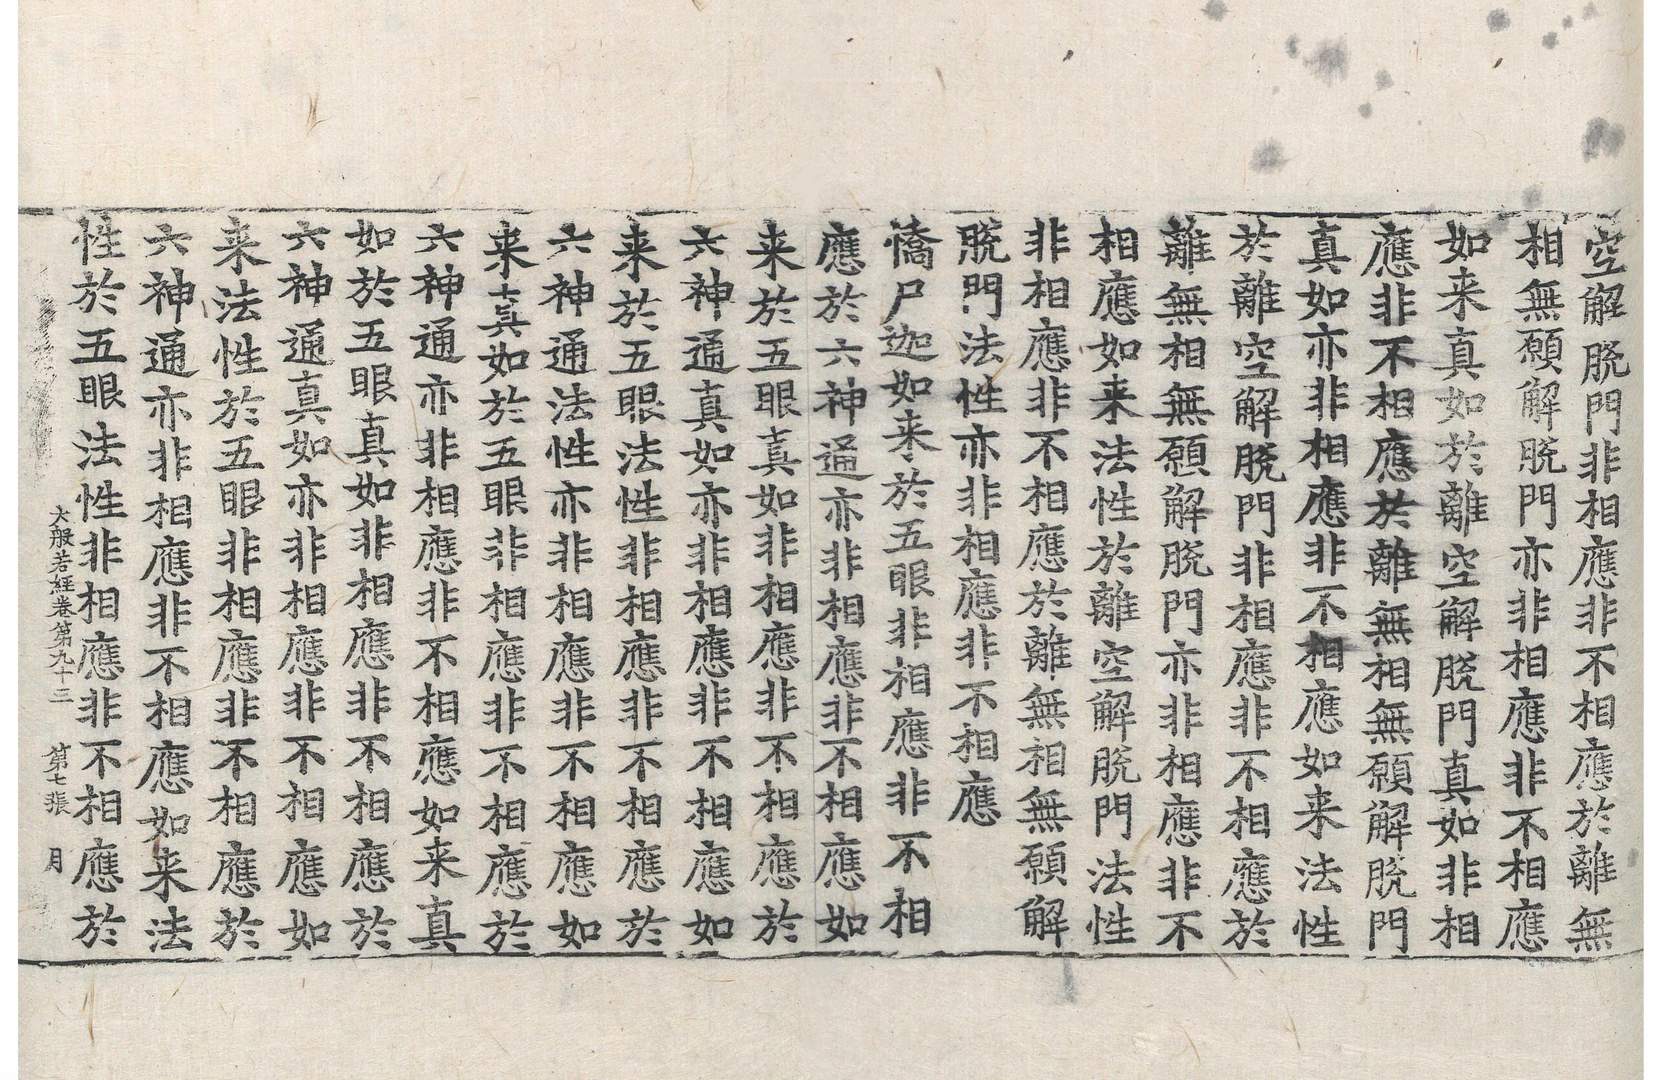 空解脫門非相應非不相應於離無
相無願解脫門亦非相應非不相應
如来真如於離空解脫門真如非相
應非不相應於離無相無願解脫門
真如亦非相應非不相應如来法性
於離空解脫門非相應非不相應於
離無相無願解脫門亦非相應非不
相應如来法性於離空解脫門法性
非相應非不相應於離無相無願解
脫門法性亦非相應非不相應
憍尸迦如来於五眼非相應非不相
應於六神通亦非相應非不相應如
来於五眼真如非相應非不相應於
六神通真如亦非相應非不相應如
来於五眼法性非相應非不相應於
六神通法性亦非相應非不相應如
来真如於五眼非相應非不相應於
六神通亦非相應非不相應如来真
如於五眼真如非相應非不相應於
六神通真如亦非相應非不相應如
来法性於五眼非相應非不相應於
六神通亦非相應非不相應如来法
性於五眼法性非相應非不相應於
大般若經卷第九十三 第七張 月